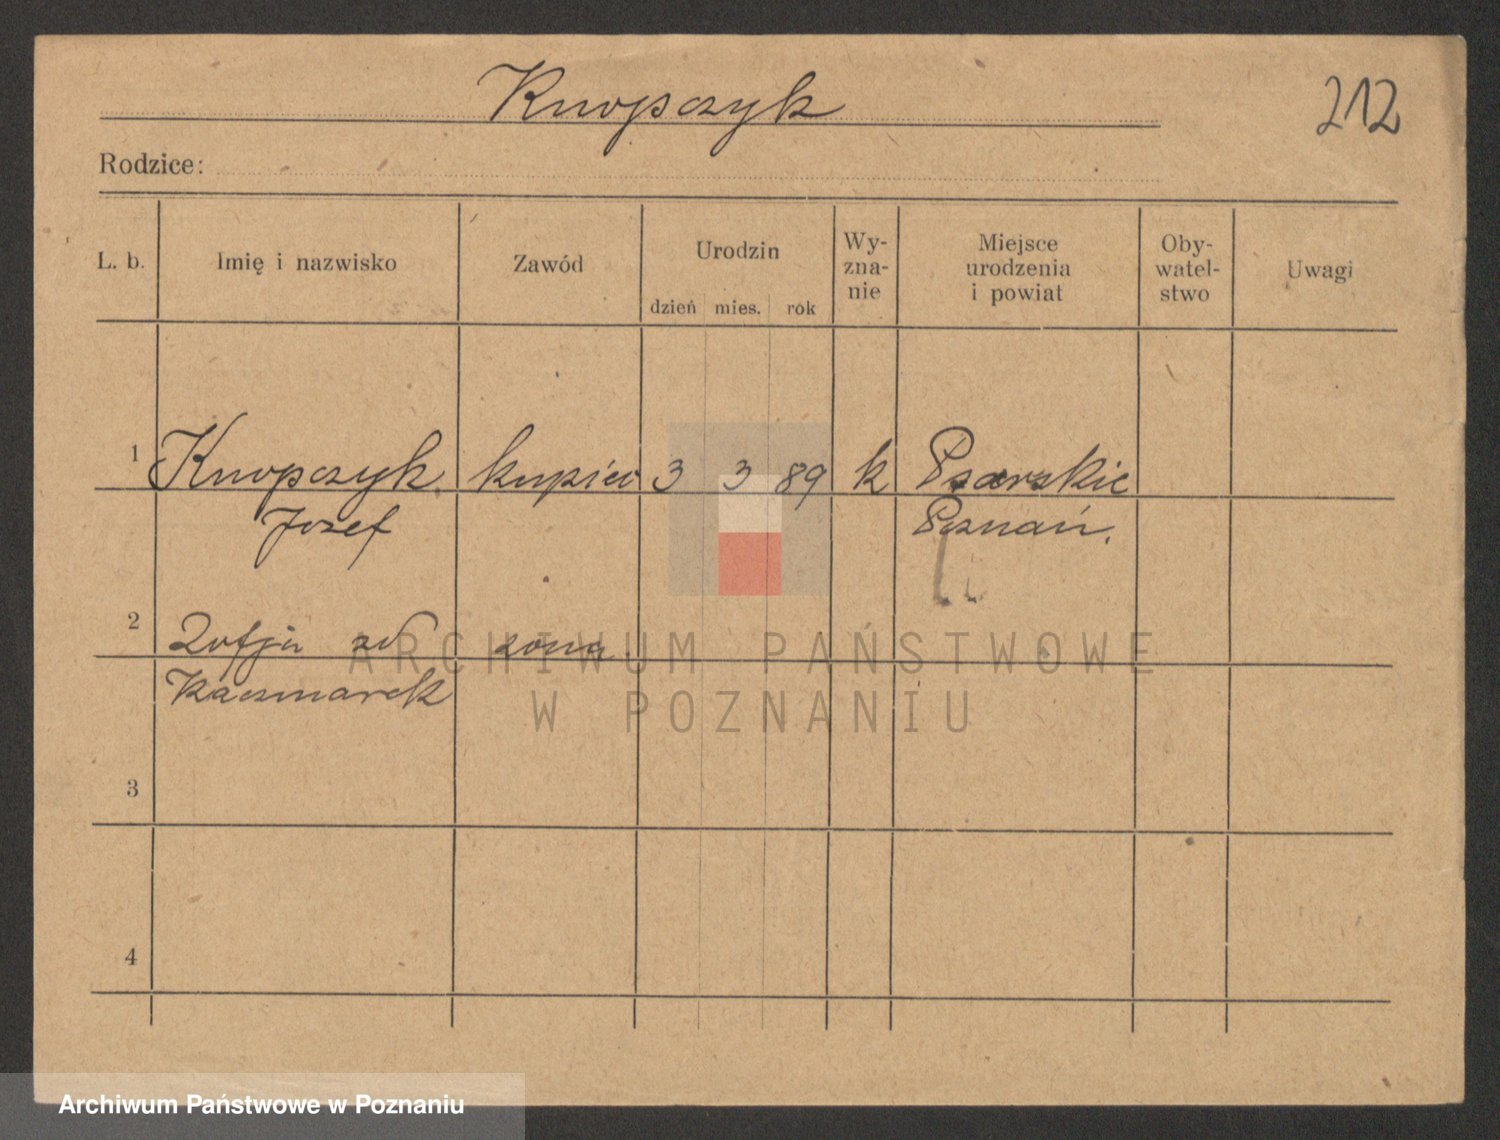 Knopczyk
212
Rodzice:
L. b.
Imię i nazwisko
Zawód
Urodzin
dzień mies. rok
Wy-
zna-
nie
Miejsce
urodzenia
i powiat
Oby-
watel-
stwo
Uwagi
1 Knopczyk kupiec 3 3 89 k Psarskie
Józef Poznań.
2 Zofja żona
Kaczmarek
3
4
ARCHIWUM PAŃSTWOWE
W POZNANIU
Archiwum Państwowe w Poznaniu